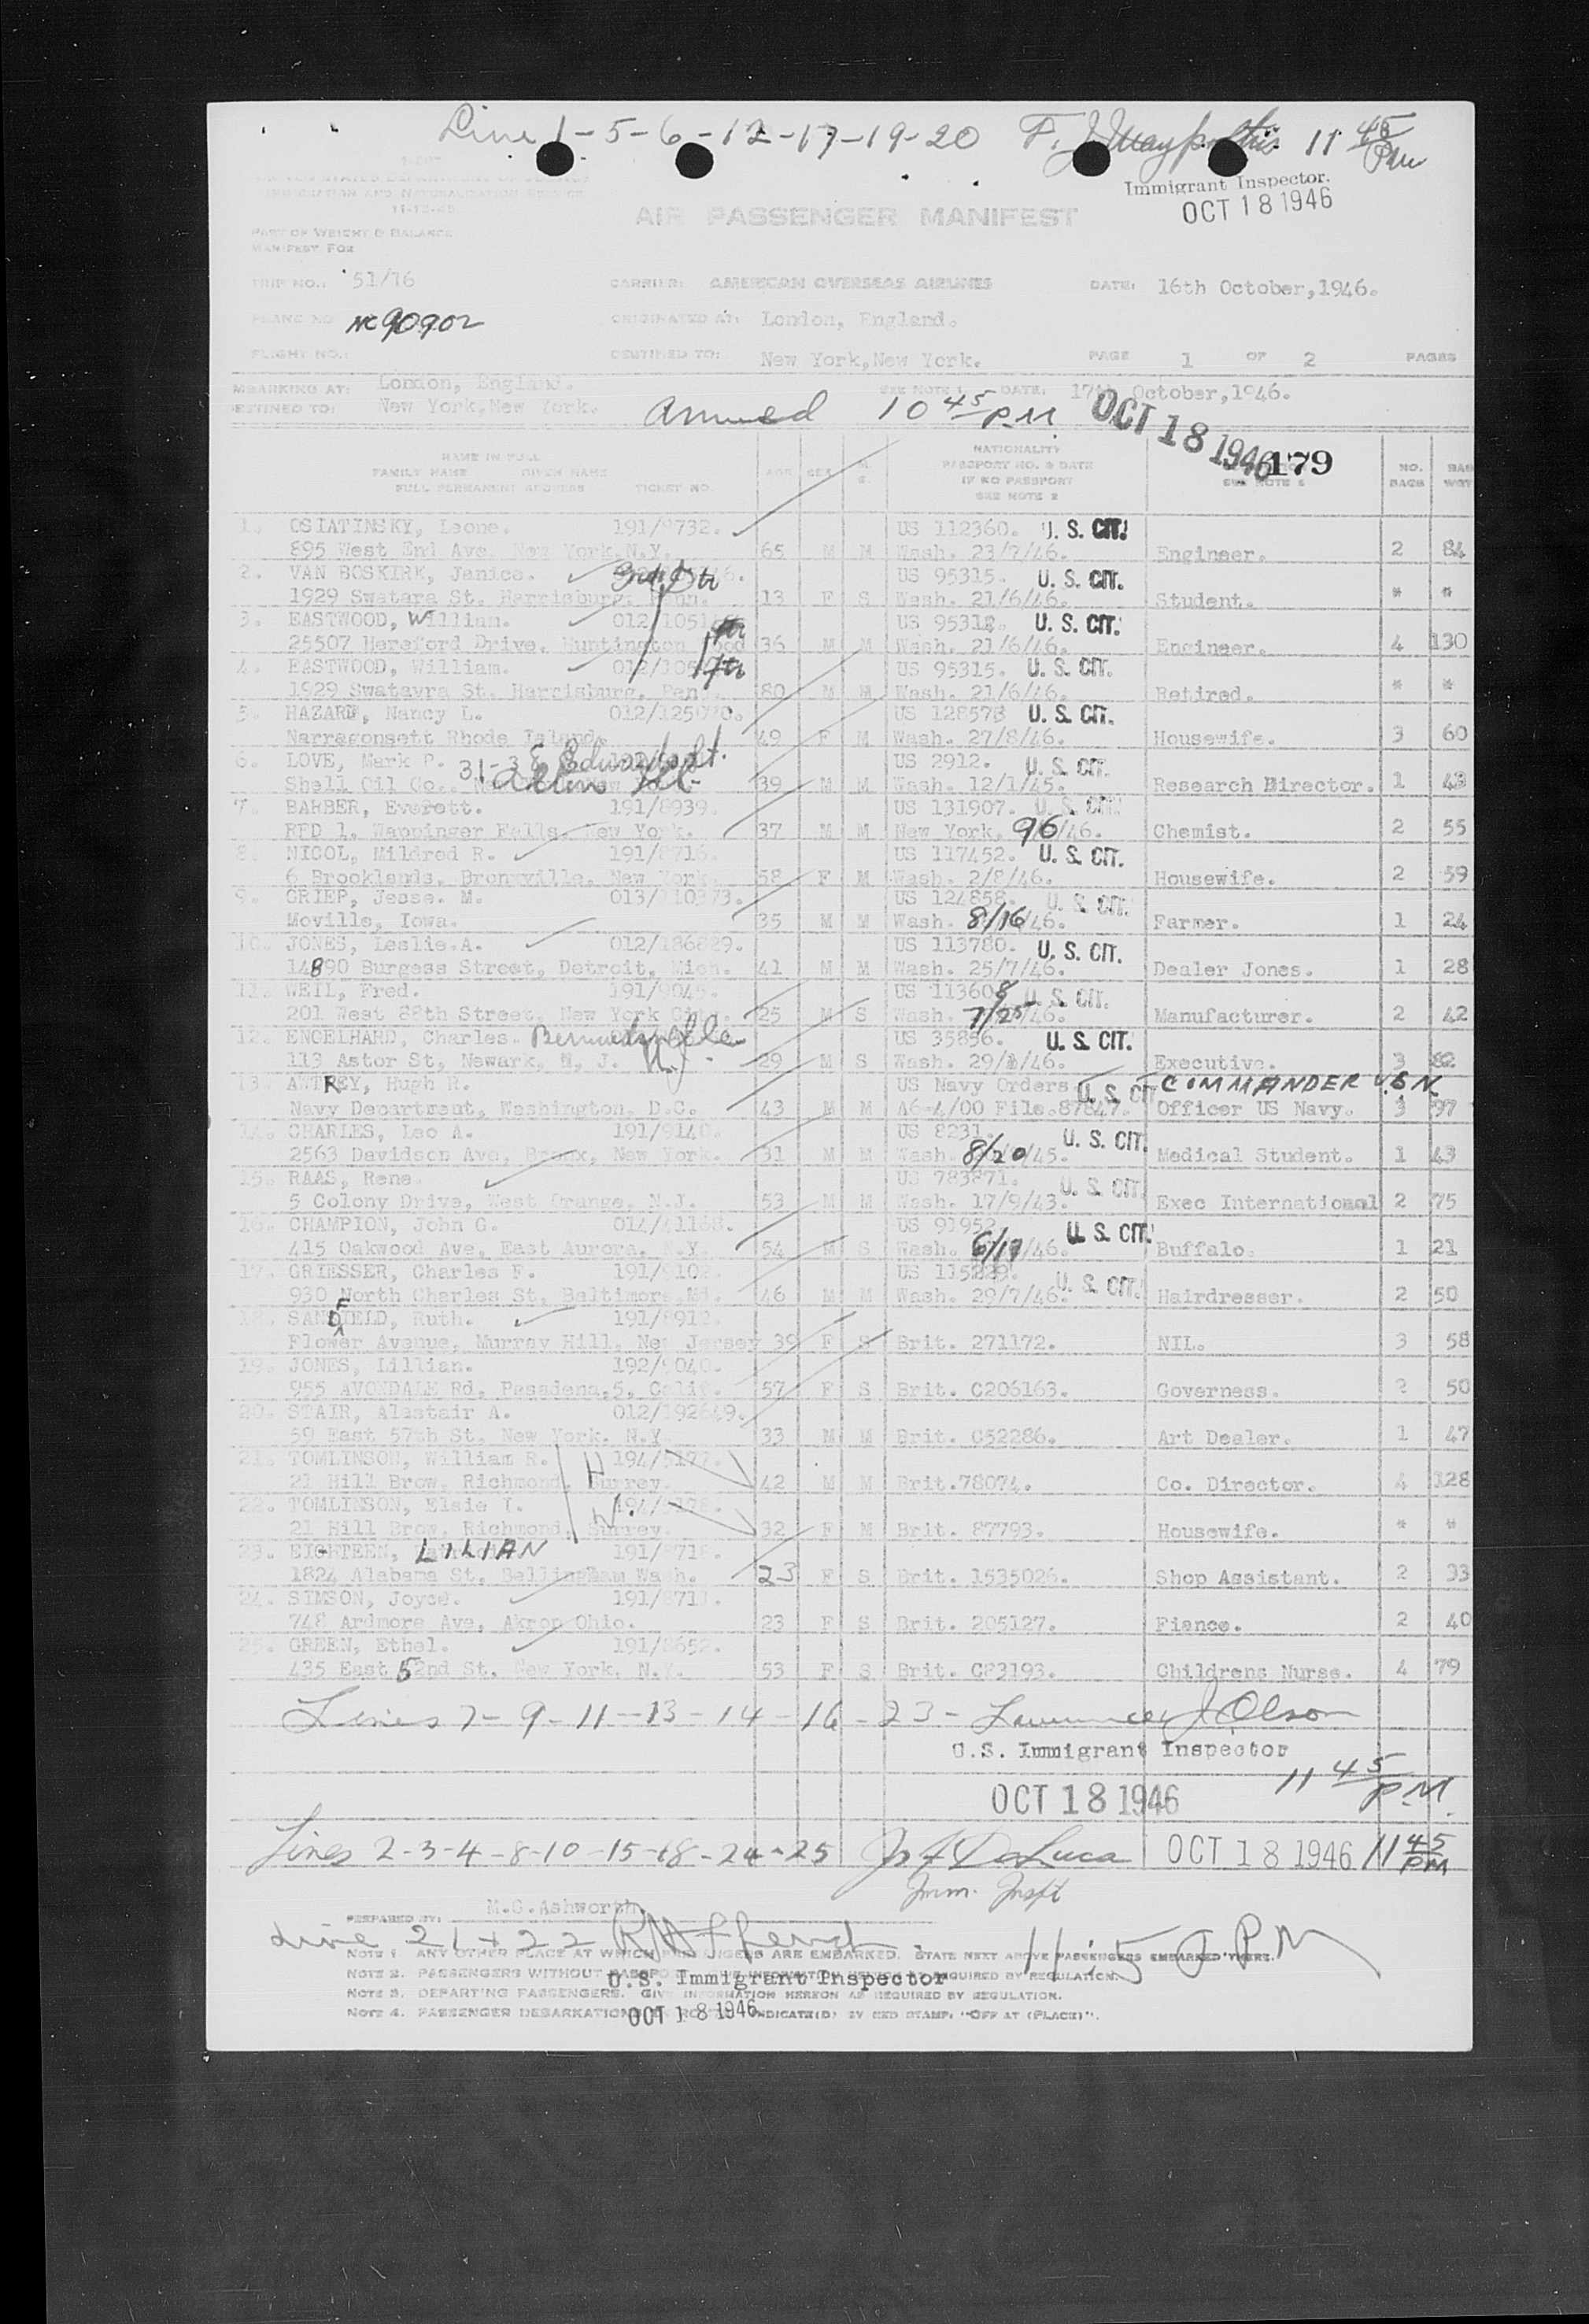 Line 1-5-6-12-17-19-20 F. J. 11 45 PM
Immigrant Inspector.
OCT 18 1946
IMMIGRATION AND NATURALIZATION SERVICE
11-15-45
AIR PASSENGER MANIFEST
PART OF WEIGHT & BALANCE
MANIFEST FOR
TRIP NO.: 51/16 CARRIER: AMERICAN OVERSEAS AIRLINES DATE: 16th October, 1946.
PLANE NO NC90902 ORIGINATED AT: London, England.
FLIGHT NO.: DESTINED TO: New York, New York. PAGE 1 OF 2 PAGES
MBARKING AT: London, England. SEE NOTE 1 DATE: 17th October, 1946.
ESTINED TO: New York, New York. Arrived 10 45 P.M OCT 18 1946
179
NAME IN FULL
FAMILY NAME GIVEN NAME
FULL PERMANENT ADDRESS TICKET NO. AGE SEX M S NATIONALITY PASSPORT NO. & DATE IF NO PASSPORT SEE NOTE 2 SEE NOTE NO. BAGS BAG WGT
1. OSIATINSKY, Leone. 191/8732. US 112360. U. S. CIT.
895 West End Ave. New York, N.Y. 65 M M Wash. 23/7/46. Engineer. 2 84
2. VAN BOSKIRK, Janice. US 95315. U. S. CIT.
1929 Swatara St. Harrisburg, Penn. 13 F S Wash. 21/6/46. Student. * *
3. EASTWOOD, William. 012/1051 US 95312. U. S. CIT.
25507 Hereford Drive, Huntington Wood 36 M M Wash. 21/6/46. Engineer. 4 130
4. EASTWOOD, William. US 95315. U. S. CIT.
1929 Swatavra St. Harrisburg, Pen. 80 M M Wash. 21/6/46. Retired. * *
5. HAZARD, Nancy L. 012/125070. US 128573 U. S. CIT.
Narragonsett Rhode Island. 49 F M Wash. 27/8/46. Housewife. 3 60
6. LOVE, Mark P. 31-38 Edwards St. US 2912. U. S. CIT.
Shell Oil Co. Alton Ill. 39 M M Wash. 12/1/45. Research Director. 1 43
7. BARBER, Everett. 191/8939. US 131907. U. S. CIT.
RFD 1. Wappinger Falls, New York. 37 M M New York. 9/6/46. Chemist. 2 55
8. NICOL, Mildred R. 191/8716. US 117452. U. S. CIT.
6 Brooklands, Bronxville, New York. 58 F M Wash. 2/8/46. Housewife. 2 59
9. GRIEP, Jesse. M. 013/110373. US 124858. U. S. CIT.
Moville, Iowa. 35 M M Wash. 8/16/46. Farmer. 1 24
10. JONES, Leslie.A. 012/186829. US 113780. U. S. CIT.
14890 Burgess Street, Detroit, Mich. 41 M M Wash. 25/7/46. Dealer Jones. 1 28
11. WEIL, Fred. 191/9045. US 113608 U. S. CIT.
201 West 88th Street, New York City. 25 M S Wash. 7/25/46. Manufacturer. 2 42
12. ENGELHARD, Charles. Bernardsville US 35896. U. S. CIT.
113 Astor St, Newark, N, J. N.J. 29 M S Wash. 29/1/46. Executive. 3 82
13. AWTREY, Hugh R. US Navy Orders U. S. CIT COMMANDER USN
Navy Department, Washington, D.C. 43 M M A6-4/00 File.87847. Officer US Navy. 3 97
14. CHARLES, Leo A. 191/9140. US 8231. U. S. CIT.
2563 Davidson Ave, Bronx, New York. 31 M M Wash. 8/20/45. Medical Student. 1 43
15. RAAS, Rene. US 783871. U. S. CIT
5 Colony Drive, West Orange, N.J. 53 M M Wash. 17/9/43. Exec International 2 75
16. CHAMPION, John G. US 91952. U. S. CIT.
415 Oakwood Ave, East Aurora, N.Y 54 M S Wash. 6/17/46. Buffalo. 1 21
17. GRIESSER, Charles F. US 115289. U. S. CIT.
930 North Charles St, Baltimore, Md. 46 M M Wash. 29/7/46. Hairdresser. 2 50
18. SANDFIELD, Ruth. 191/8912. F
Flower Avenue, Murray Hill, New Jersey 39 F S Brit. 271172. NIL. 3 58
19. JONES, Lillian. 192/9040.
955 AVONDALE Rd, Pasadena,5, Calif. 57 F S Brit. C206163. Governess. 2 50
20. STAIR, Alastair A. 012/192649.
59 East 57th St, New York. N.Y 33 M M Brit. C52286. Art Dealer. 1 47
21. TOMLINSON, William R. H 194/5177.
21 Hill Brow, Richmond, Surrey. 42 M M Brit.78074. Co. Director. 4 128
22. TOMLINSON, Elsie I. W. 194/5178.
21 Hill Brow, Richmond, Surrey. 32 F M Brit. 87793. Housewife. * *
23. EIGHTEEN, LILIAN 191/8718.
1824 Alabama St, Bellingham Wash. 23 F S Brit. 1535026. Shop Assistant. 2 33
24. SIMSON, Joyce. 191/8711.
748 Ardmore Ave, Akron Ohio. 23 F S Brit. 205127. Fiance. 2 40
25. GREEN, Ethel. 191/8652.
435 East 52nd St, New York, N.Y. 53 F S Brit. C83193. Childrens Nurse. 4 79
Lines 7-9-11-13-14-16-23- Lawrence J Olson
U.S. Immigrant Inspector
OCT 18 1946 11 45 P.M.
Lines 2-3-4-8-10-15-18-24-25 Jos F DeLuca OCT 18 1946 11 45 PM
Imm. Inspt
PREPARED BY: M.G.Ashworth.
Line 21 + 22 R French 11:50 PM
NOTE 1. ANY OTHER PLACE AT WHICH PASSENGERS ARE EMBARKED, STATE NEXT ABOVE PASSENGERS EMBARKED THERE.
NOTE 2. PASSENGERS WITHOUT PASSPORT REQUIRED BY REGULATION.
U.S. Immigrant Inspector
NOTE 3. DEPARTING PASSENGERS. GIVE INFORMATION HEREON AS REQUIRED BY REGULATION.
NOTE 4. PASSENGER DEBARKATIONS INDICATE(D) BY RED STAMP: "OFF AT (PLACE)".
OCT 18 1946